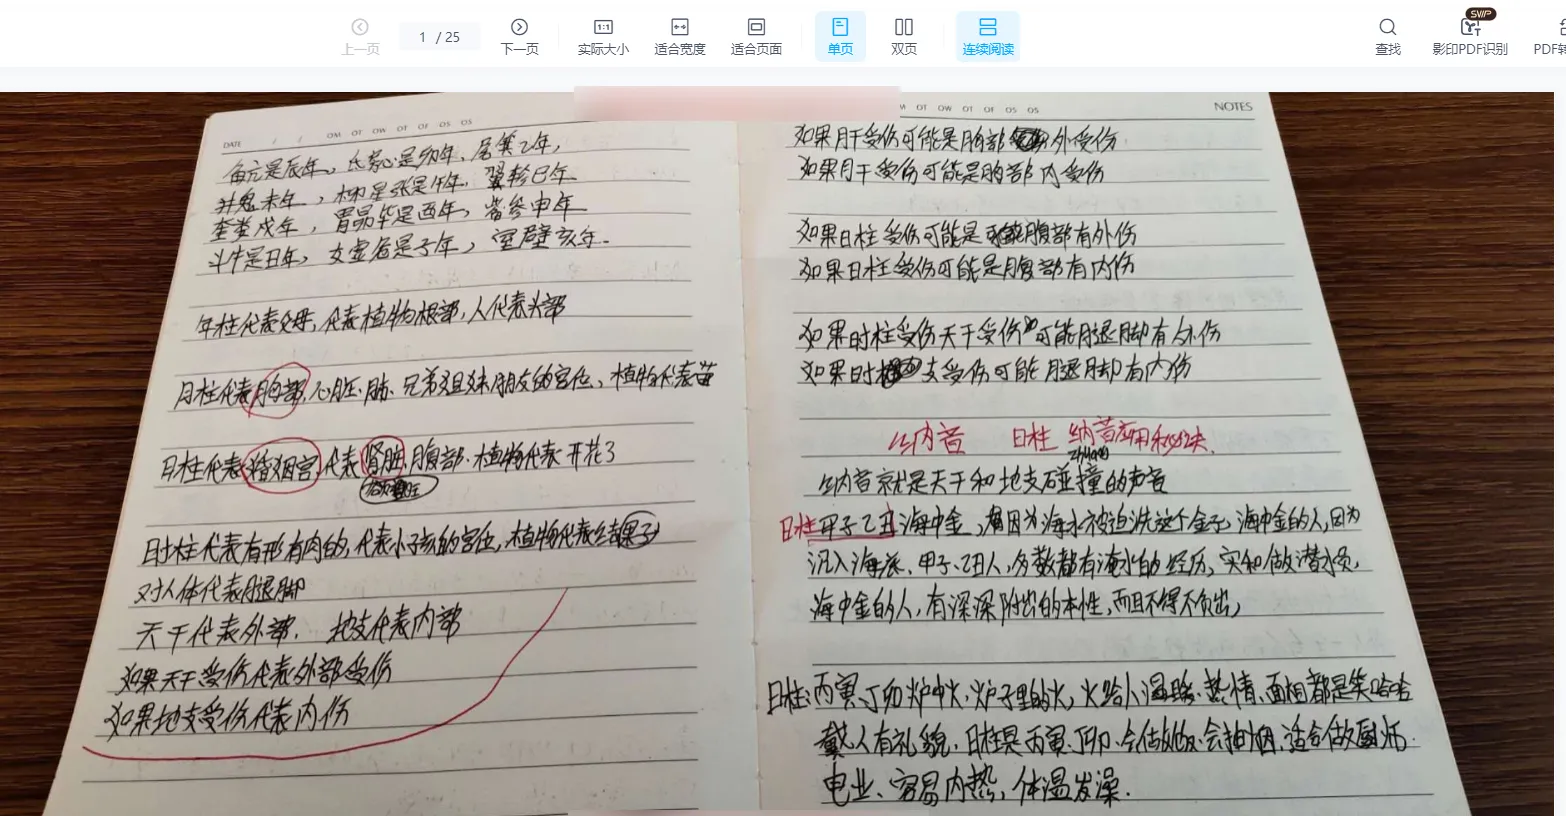 上一页
1 / 25
下一页
1:1
实际大小
适合宽度
适合页面
单页
双页
连续阅读
查找
SVIP
影印PDF识别
PDF转
DATE / /
OM OT OW OT OF OS OS
角亢是辰年、氐房心是卯年、尾箕乙年,
井鬼未年,柳星张是午年,翼轸巳年
奎娄戌年,胃昴毕是酉年,觜参申年
斗牛是丑年,女虚危是子年,室壁亥年.
年柱代表父母,代表植物根部,人代表头部
月柱代表胸部,心脏、肺、兄弟姐妹朋友的宫位、植物代表苗
日柱代表婚姻宫代表肾脏、腹部.植物代表开花了
时柱代表有形有肉的,代表小孩的宫位,植物代表结果子
对人体代表腿脚
天干代表外部. 地支代表内部
如果天干受伤代表外部受伤
如果地支受伤代表内伤
OT OW OT OF OS OS
NOTES
如果月干受伤可能是胸部外受伤.
如果月干受伤可能是胸部内受伤
如果日柱受伤可能是腹部有外伤
如果日柱受伤可能是腹部有内伤
如果时柱受伤天干受伤可能腿脚有外伤
如果时支受伤可能腿脚有内伤
纳音 日柱 纳音应用秘诀.
zhuang
纳音就是天干和地支碰撞的声音
日柱甲子乙丑海中金,因为海水被迫洗这个金子,海中金的人,因为
沉入海底、甲子、乙丑人,多数都有淹水的经历,实和做潜水员,
海中金的人,有深深附出的本性,而且不得不负出,
日柱:丙寅、丁卯炉中火.炉子里的火,火给人温暖、热情、面相都是笑哈哈
戴人有礼貌.日柱是丙寅、丁卯.会做饭.会抽烟.适合做厨师.
电业、容易内热,体温发燥.